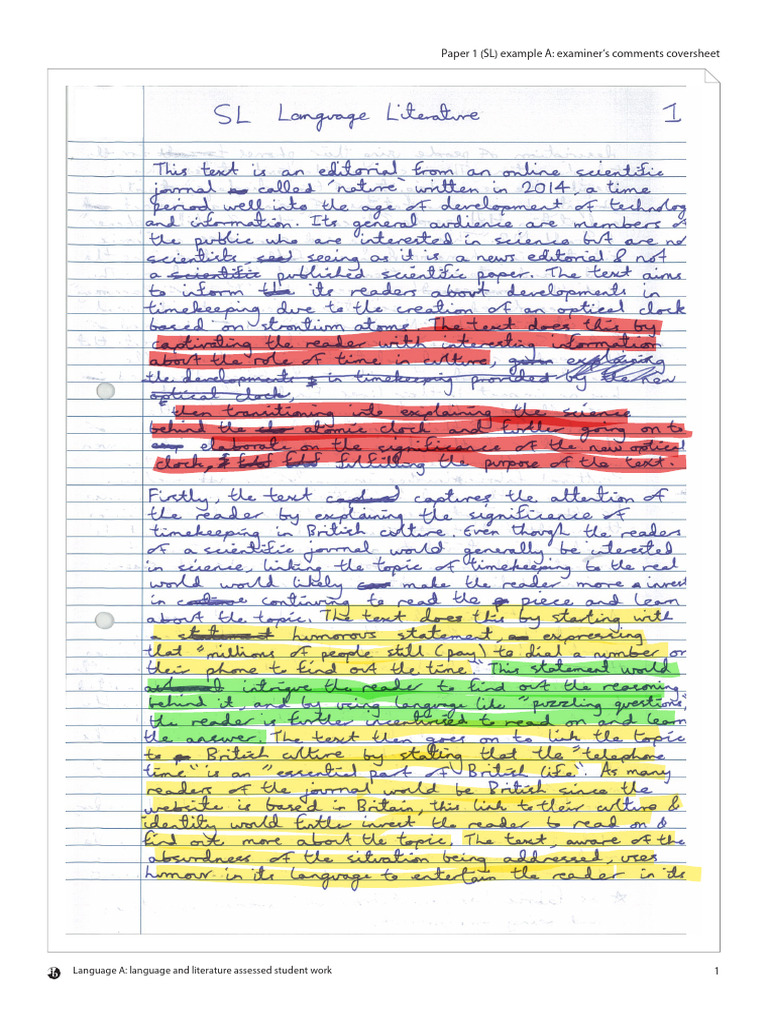 Paper 1 (SL) example A: examiner's comments coversheet
SL Language Literature 1
This text is an editorial from an online scientific
journal called 'nature' written in 2014, a time
period well into the age of development of technology
and information. Its general audience are members of
the public who are interested in science but are not
scientists, seeing as it is a news editorial & not
a scientific published scientific paper. The text aims
to inform its readers about developments in
timekeeping due to the creation of an optical clock
based on strontium atoms. The text does this by
captivating the reader with interesting information
about the role of time in culture, explaining
the developments in timekeeping provided by the new
optical clock,
then transitioning into explaining the science
behind the atomic clock and further going on to
elaborate on the significance of the new optical
clock, fulfilling the purpose of the text.
Firstly, the text captures the attention of
the reader by explaining the significance of
timekeeping in British culture. Even though the readers
of a scientific journal would generally be interested
in science, linking the topic of timekeeping to the real
world would likely make the reader more invest
in continuing to read the piece and learn
about the topic. The text does this by starting with
a statement humorous statement, expressing
that "millions of people still (pay) to dial a number on
their phone to find out the time." This statement would
intrigue the reader to find out the reasoning
behind it, and by using language like "puzzling questions",
the reader is further incentivised to read on and learn
the answer. The text then goes on to link the topic
to British culture by stating that the "telephone
time" is an "essential part of British life". As many
readers of the journal would be British since the
website is based in Britain, this link to their culture &
identity would further invest the reader to read on &
find out more about the topic. The text, aware of the
absurdness of the situation being addressed, uses
humour in its language to entertain the reader in its
Language A: language and literature assessed student work 1